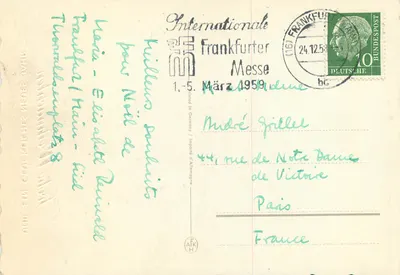 Meilleurs souhaits
pour Noël de
Maria - Elisabeth
Frankfurt/Main - Süd
8
Internationale
Frankfurter
Messe
1.-5. März 1959
(16) FRANKFURT
24.12.58
bc
DEUTSCHE
BUNDESPOST
10
Madame
André Grillet
44, rue de Notre Dame
de Victoire
Paris
France